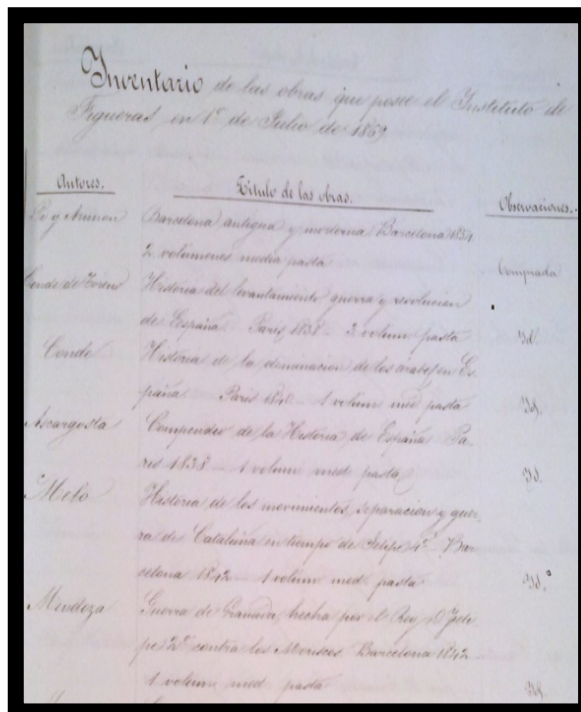 Inventario de las obras que posee el Instituto de
Figueras en 1º de Julio de 1859
Autores. Título de las obras. Observaciones.
Pi y Arimon Barcelona antigua y moderna Barcelona 1854
2 volumenes media pasta Comprada
Conde de Toreno Historia del levantamiento guerra y revolucion
de España Paris 1838 - 3 volum pasta Id.
Conde Historia de la dominacion de los arabes en Es-
paña Paris 1840 - 1 volum med pasta Id.
Ascargosta Compendio de la Historia de España Pa-
ris 1838 - 1 volum med. pasta Id.
Melo Historia de los movimientos, separacion y guer-
ra de Cataluña en tiempo de Felipe 4º - Bar-
celona 1842 - 1 volum med. pasta Id.
Mendoza Guerra de Granada, hecha por el Rey D. Feli-
pe 2º contra los Moriscos Barcelona 1842
1 volum med. pasta Id.